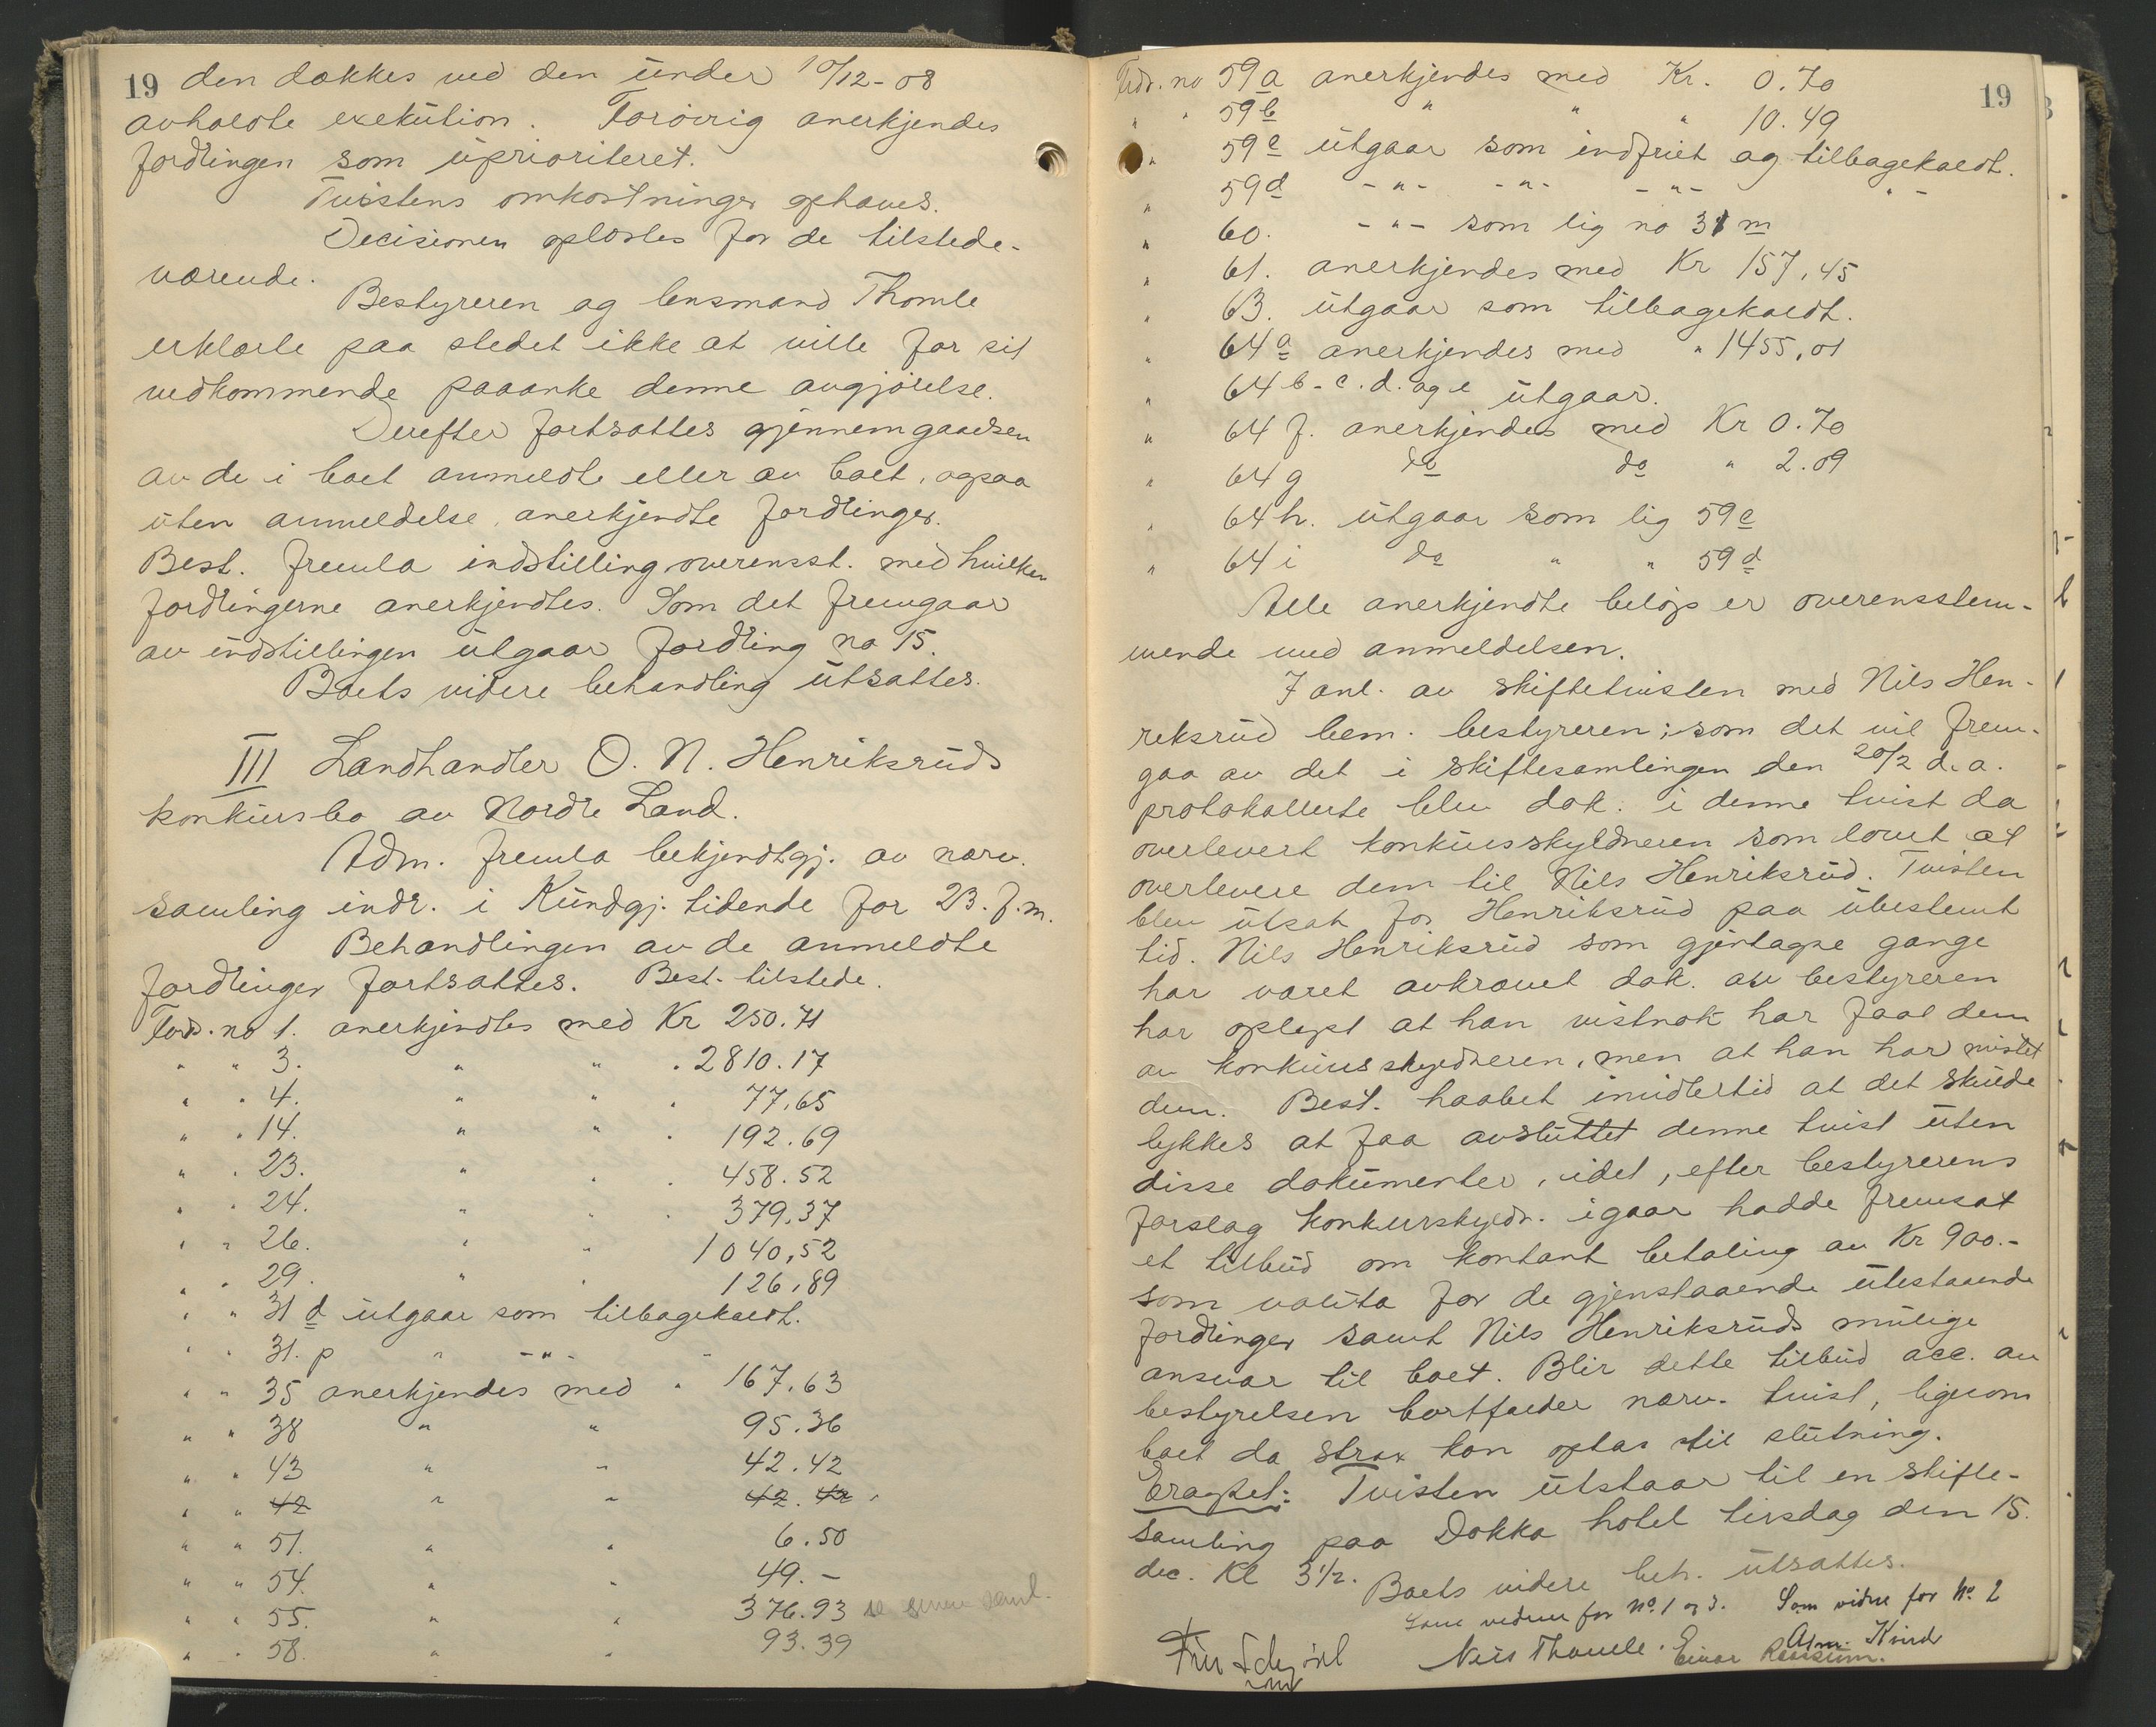 19 den dækkes ved den under 10/12-08
avholdte exekution. Forøvrig anerkjendes
fordringen som uprioriteret.
Tvistens omkostninger ophæves.
Decisionen oplæstes for de tilstede-
værende.
Bestyreren og lensmand Thomle
erklærte paa stedet ikke at ville for sit
vedkommende paaanke denne avgjørelse.
Derefter fortsattes gjennemgaaelsen
av de i boet anmeldte eller av boet, ogsaa
uten anmeldelse, anerkjendte fordringer.
Best. fremla indstilling overensst. med hvilken
fordringerne anerkjendtes. Som det fremgaar
av indstillingen utgaar fordring no 15.
Boets videre behandling utsattes.
III Landhandler O. N. Henriksruds
konkursbo av Nordre Land.
Adm. fremla bekjendtgj. av nærv.
samling indr. i Kundgj. tidende for 23. f.m.
Behandlingen av de anmeldte
fordringer fortsattes. Best. tilstede.
Fodr. no 1. anerkjendtes med Kr 250.71
" " 3. " " " 2810.17
" " 4. " " " 77,65
" " 14. " " " 192.69
" " 23. " " " 458.52
" " 24. " " " 379,37
" " 26. " " 1040,52
" " 29. " " 126,89
" " 31 d utgaar som tilbagekaldt.
" " 31. p " -"-
" " 35 anerkjendes med " 167,63
" " 38 " " 95.36
" " 43 " " 42.42
" " 42 " " 42.42
" " 51. " " 6.50
" " 54. " " 49.-
" " 55. " " 376.93 se senere saml.
" " 58. " " 93.39
19
Fodr. no 59a anerkjendes med Kr. 0.70
" " 59b " " " 10.49
" 59c utgaar som indfriet og tilbagekaldt.
" 59d -"- -"- -"- "-
" 60. -"- som lig no 31 m
" 61. anerkjendes med Kr 157,45
" 63. utgaar som tilbagekaldt.
" 64a anerkjendes med " 1455,01
" 64 b-c.d. og e utgaar.
" 64 f. anerkjendes med Kr 0.70
" 64 g do do " 2.09
" 64 h. utgaar som lig 59c
" 64 i do " " 59d
Alle anerkjendte beløp er overensstem-
mende med anmeldelsen.
I anl. av skiftetvisten med Nils Hen-
riksrud bem. bestyreren; som det vil frem-
gaa av det i skiftesamlingen den 20/2 d.a.
protokollerte blev dok. i denne tvist da
overlevert konkursskyldneren som lovet at
overlevere dem til Nils Henriksrud. Tvisten
blev utsat for Henriksrud paa ubestemt
tid. Nils Henriksrud som gjentagne gange
har været avkrævet dok. av bestyreren
har oplyst at han vistnok har faat dem
av konkursskyldneren, men at han har mistet
dem. Best. haabet imidlertid at det skulde
lykkes at faa avsluttet denne tvist uten
disse dokumenter, idet, efter bestyrerens
forslag konkurskyldn. igaar hadde fremsat
et tilbud om kontant betaling av Kr 900.-
som valuta for de gjenstaaende utestaaende
fordringer samt Nils Henriksruds mulige
ansvar til boet. Blir dette tilbud acc. av
bestyrelsen bortfalder nærv. tvist, ligesom
boet da strax kan optas til slutning.
Eragtet: Tvisten utstaar til en skifte-
samling paa Dokka hotel tirsdag den 15.
dec. Kl 3½.
Boets videre beh. utsattes.
Som vidner for No. 1 og 3. Som vidne for No. 2
Nils Thomle. Einar